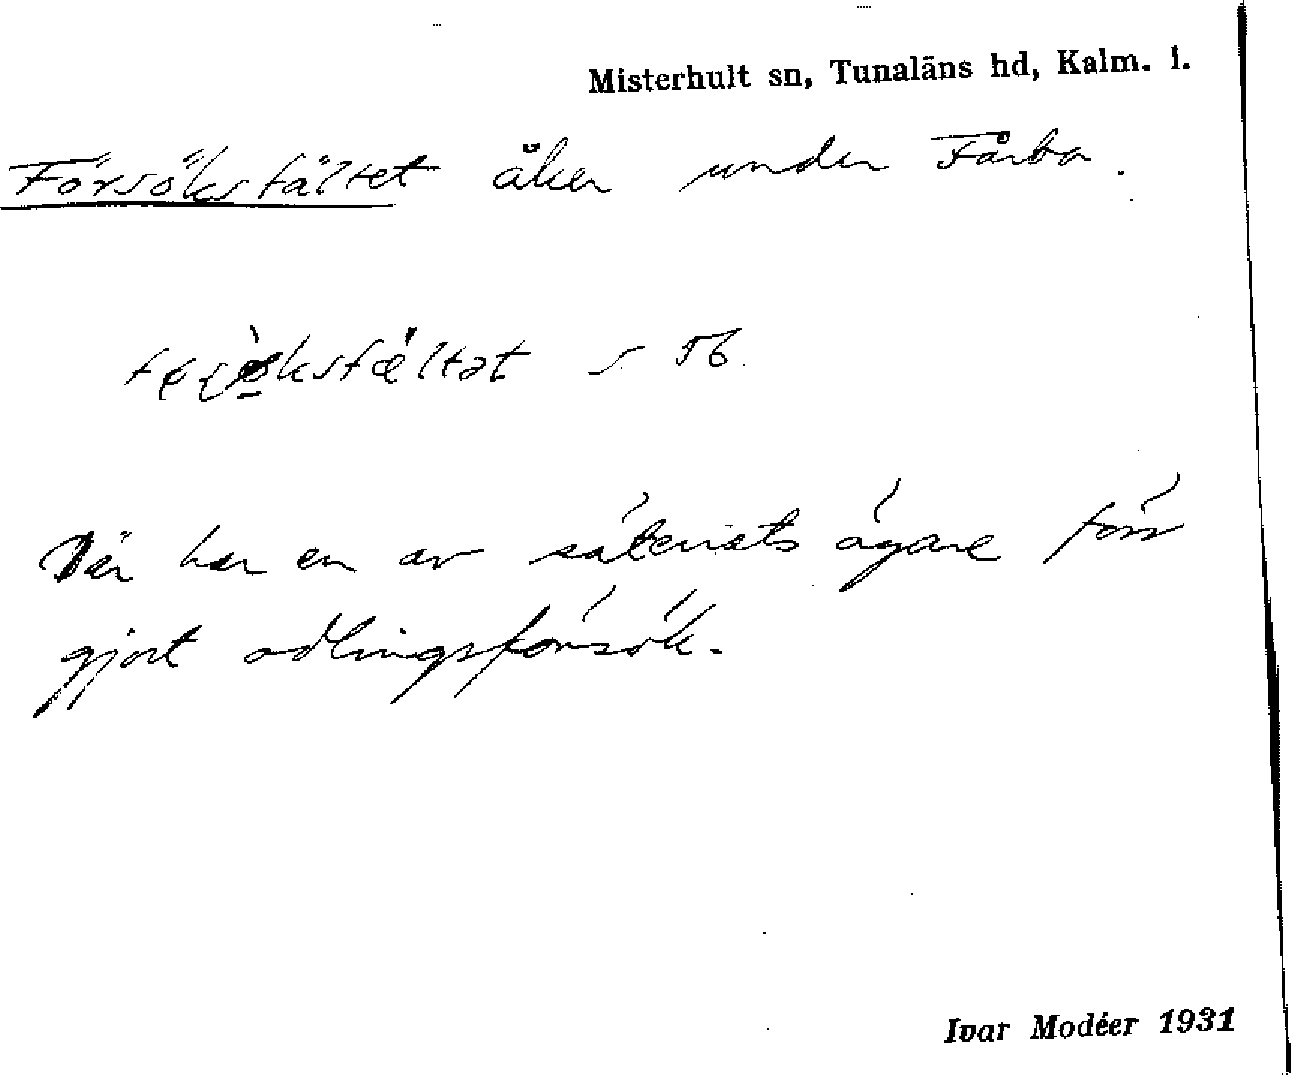 Misterhult sn, Tunaläns hd, Kalm. l.
Försöksfältet åker under Fårbo.
s. 56.
Där har en av säteriets ägare förr
gjort odlingsförsök.
Ivar Modéer 1931